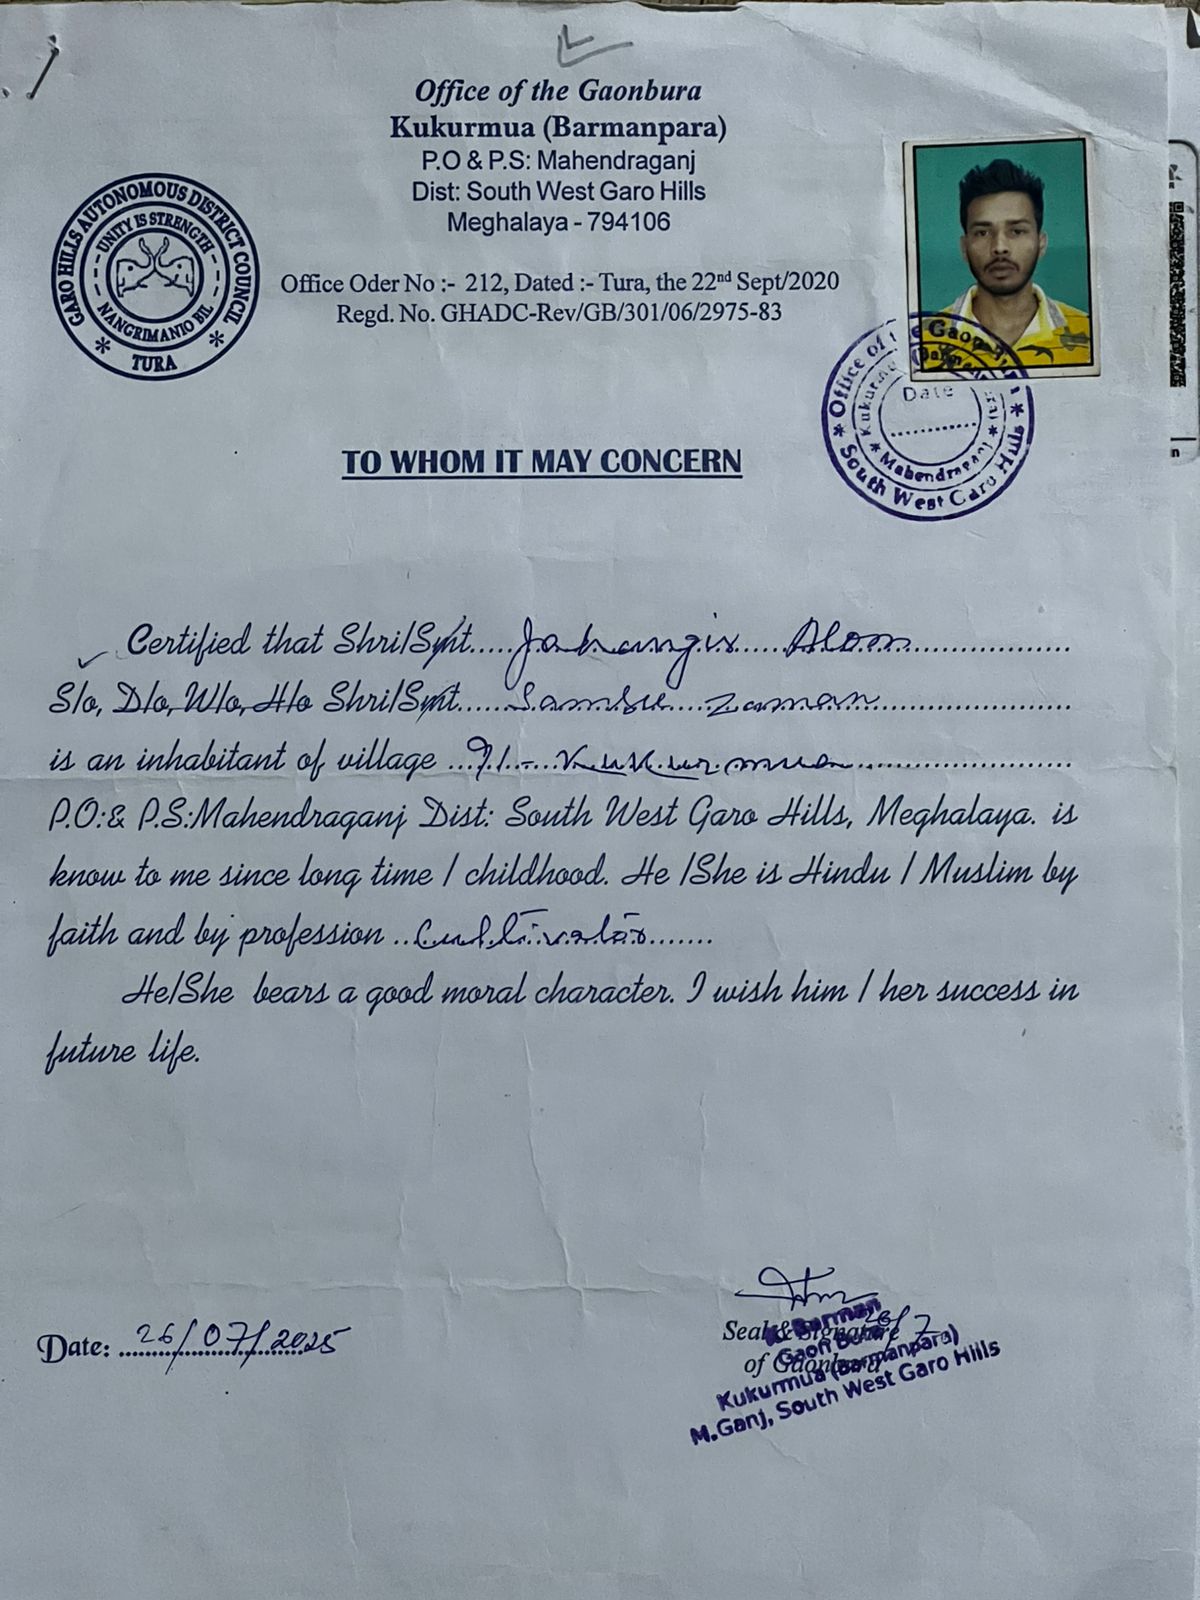 Office of the Gaonbura
Kukurmua (Barmanpara)
P.O & P.S: Mahendraganj
Dist: South West Garo Hills
Meghalaya - 794106
GARO HILLS AUTONOMOUS DISTRICT COUNCIL
UNITY IS STRENGTH
NANGRIMANIO BIL
* TURA *
Office Oder No :- 212, Dated :- Tura, the 22nd Sept/2020
Regd. No. GHADC-Rev/GB/301/06/2975-83
Office of the Gaon
Date
* Mahendraganj *
* South West Garo Hills *
TO WHOM IT MAY CONCERN
Certified that Shri/Smt.....Jahangir Alom
S/o, D/o, W/o, H/o Shri/Smt......Samsu Zaman
is an inhabitant of village ...Kukurmua
P.O:& P.S:Mahendraganj Dist: South West Garo Hills, Meghalaya. is
know to me since long time / childhood. He /She is Hindu / Muslim by
faith and by profession ..Cultivator.......
He/She bears a good moral character. I wish him / her success in
future life.
Date: 26/07/2025
Seal & Signature
of Gaonbura
26/7
Barman
Gaon Bura
Kukurmua (Barmanpara)
M.Ganj, South West Garo Hills